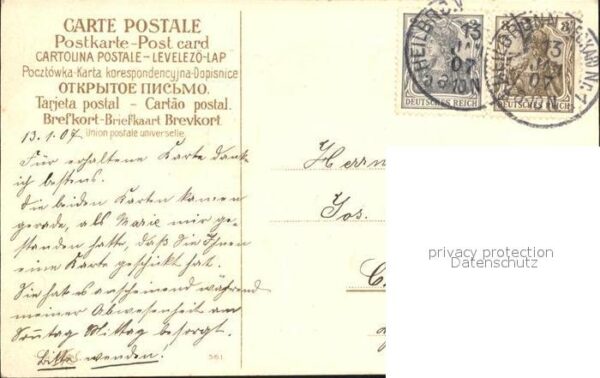 CARTE POSTALE
Postkarte-Post card
CARTOLINA POSTALE-LEVELEZŐ-LAP
Pocztówka-Karta korespondencyjna-Dopisnice
ОТКРЫТОЕ ПИСЬМО.
Tarjeta postal - Cartão postal.
Brefkort-Briefkaart Brevkort.
Union postale universelle
13.1.07
Für erhaltene Karte dank
ich bestens.
Die beiden Karten kamen
gerade, als Marie mir ge-
standen hatte, daß Sie Ihnen
eine Karte geschickt hat.
Sie hat es anscheinend während
meiner Abwesenheit am
Sonntag Mittag besorgt.
Bitte wenden!
361
HEILBRONN
13
JAN
07
DEUTSCHES REICH
HEILBRONN NECKAR Nr. 1
13
JAN
07
DEUTSCHES REICH
Herrn
Jos.
privacy protection
Datenschutz